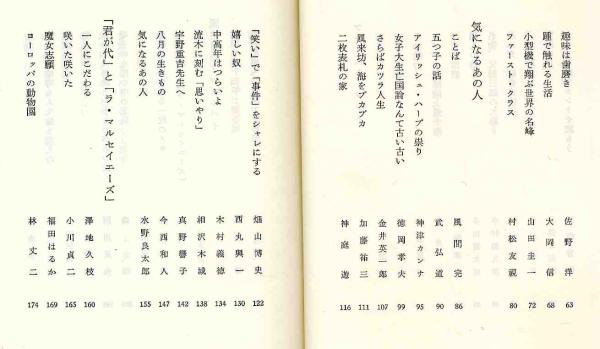 趣味は歯磨き 佐野洋 63
踵で触れる生活 大岡信 68
小型機で翔ぶ世界の名峰 山田圭一 72
ファースト・クラス 村松友視 80
気になるあの人
ことば 風間完 86
五つ子の話 武弘道 90
アイリッシュ・ハープの祟り 神津カンナ 95
女子大生亡国論なんて古い古い 徳岡孝夫 99
さらばカツラ人生 金井英一郎 107
風来坊、海をプカプカ 加藤祐三 111
二枚表札の家 神庭遊 116
「笑い」で「事件」をシャレにする 畑山博史 122
嬉しい奴 西丸興一 130
中高年はつらいよ 木村義徳 134
流木に刻む「思いやり」 相沢木城 138
宇野重吉先生へ 真野響子 142
八月の生きもの 今西和人 147
気になるあの人 水野良太郎 155
「君が代」と「ラ・マルセイエーズ」
一人にこだわる 澤地久枝 160
咲いた咲いた 小川貞二 165
魔女志願 福田はるか 169
ヨーロッパの動物園 林丈二 174